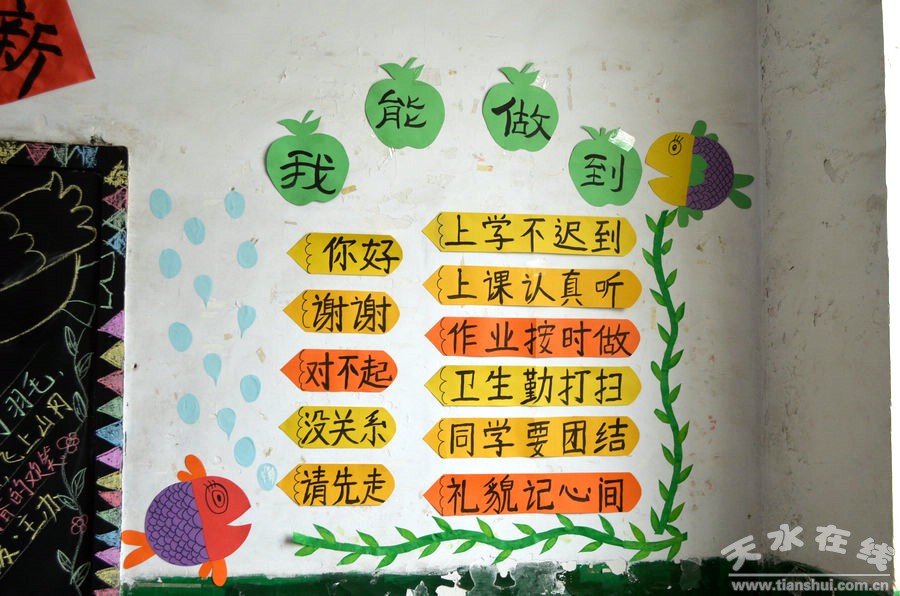 新
我能做到
你好
谢谢
对不起
没关系
请先走
上学不迟到
上课认真听
作业按时做
卫生勤打扫
同学要团结
礼貌记心间
羽毛,
飞上山冈
的欢笑
主办
天水在线
www.tianshui.com.cn